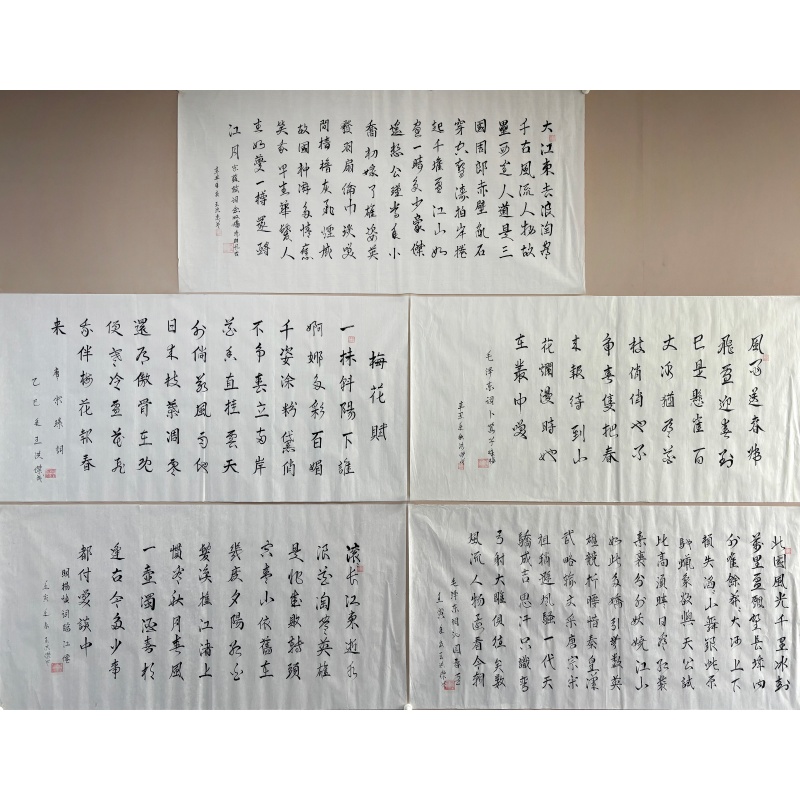 大江東去浪淘盡
千古風流人物故
壘西邊人道是三
國周郎赤壁亂石
穿空驚濤拍岸捲
起千堆雪江山如
畫一時多少豪傑
遙想公瑾當年小
喬初嫁了雄姿英
發羽扇綸巾談笑
間檣櫓灰飛煙滅
故國神游多情應
笑我早生華髮人
生如夢一樽還酹
江月 宋蘇軾詞念奴嬌赤壁懷古
梅花賦
一抹斜陽下誰
婀娜多彩百媚
千姿涂粉黛俏
不争春立南岸
直挂雲天
外倘若風雨他
日末枝葉凋零
還存傲骨在
便寒冷雪花飛
我伴梅花報春
来
宗珠詞
乙巳 王洪傑書
風雨送春歸
飛雪迎春到
已是懸崖百
丈冰猶有花
枝俏俏也不
争春隻把春
来報待到山
花爛漫時她
在叢中笑
毛泽东詞卜算子咏梅
滚滚長江東逝水
浪花淘盡英雄
是非成敗轉頭
空青山依舊在
幾度夕陽紅白
髮漁樵江渚上
慣看秋月春風
一壺濁酒喜相
逢古今多少事
都付笑談中
明楊慎詞臨江僊
北國風光千里冰封
萬里雪飄望長城内
外唯餘莽莽大河上下
頓失滔滔山舞銀蛇原
馳蠟象欲與天公試
比高須晴日看紅裝
素裹分外妖嬈江山
如此多嬌引無數英
雄競折腰惜秦皇漢
武略輸文采唐宗宋
祖稍遜風騷一代天
驕成吉思汗只識彎
弓射大雕俱往矣數
風流人物還看今朝
毛泽东詞沁园春雪